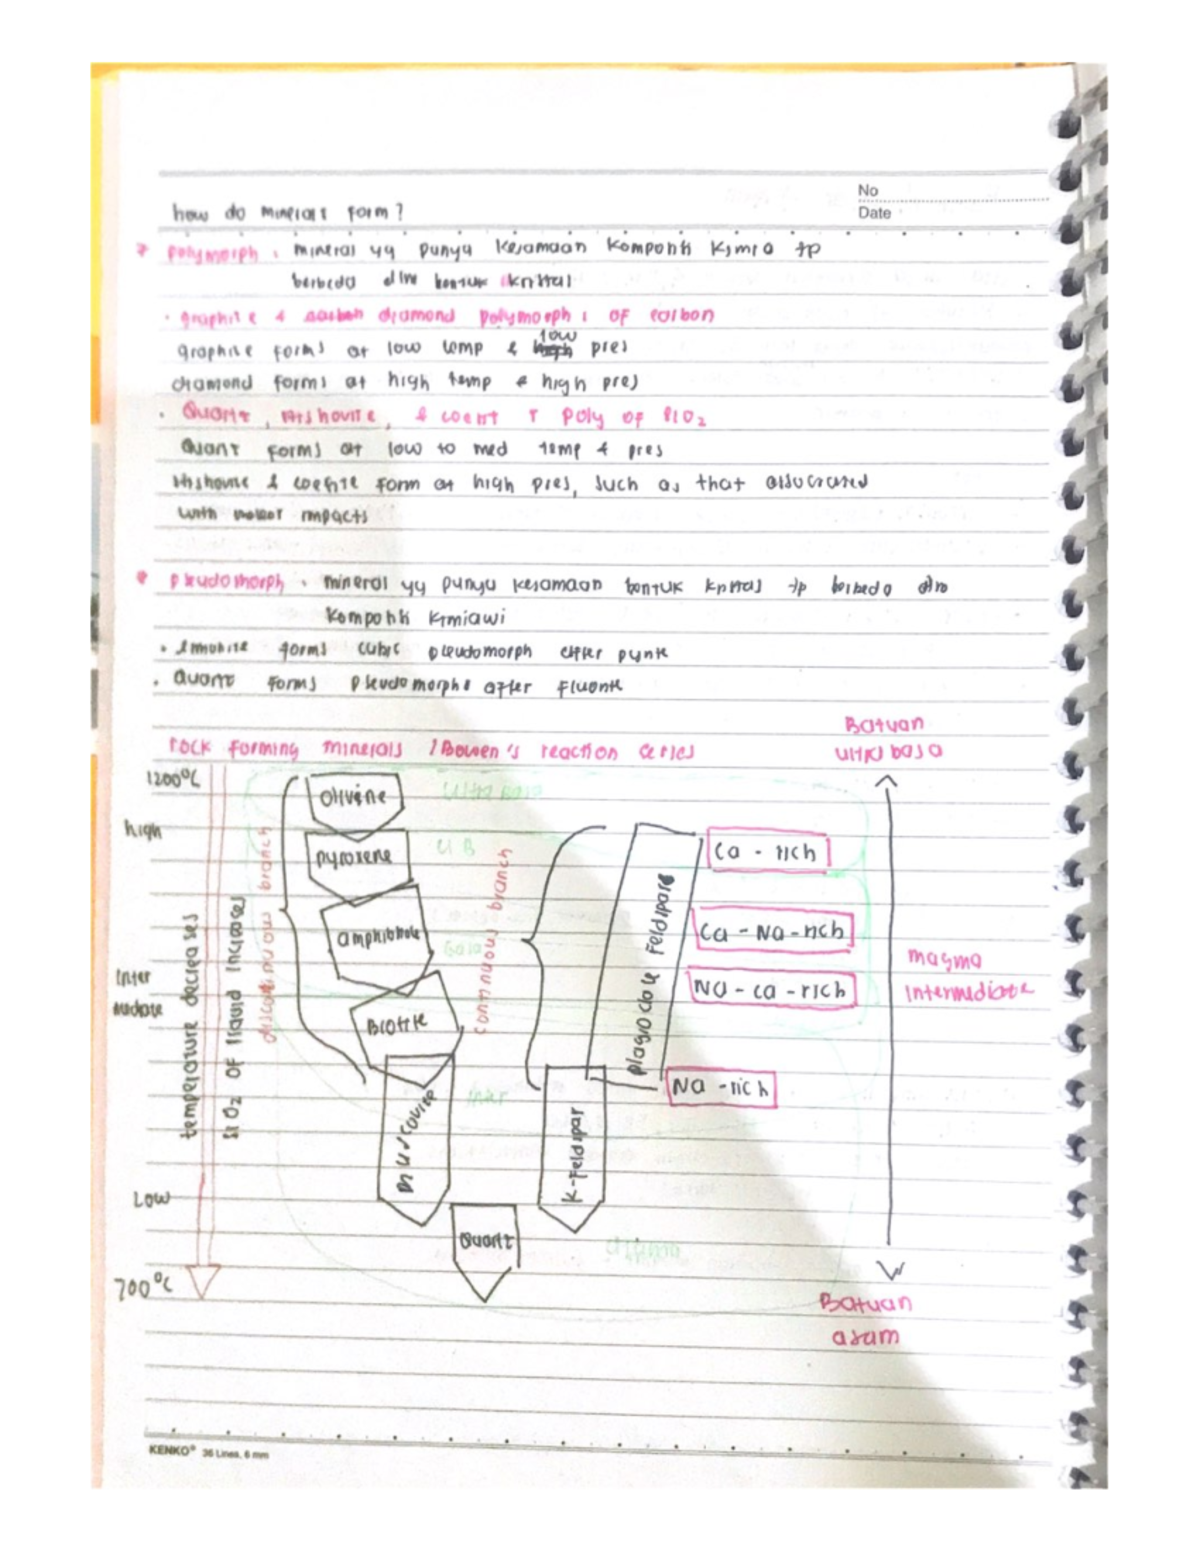 No
Date
how do minerals form?
polymorph : mineral yg punya kesamaan komposisi kimia tp
berbeda dlm bentuk kristal
· graphite & diamond polymorphs of carbon
graphite forms at low temp & low pres
diamond forms at high temp & high pres
· Quartz, stishovite, & coesit → poly of SiO2
Quartz forms at low to med temp & pres
stishovite & coesite form at high pres, such as that associated
with meteor impacts
pseudomorph : mineral yg punya kesamaan bentuk kristal tp berbeda dlm
komposisi kimiawi
· limonite forms cubic pseudomorph after pyrite
· Quartz forms pseudomorphs after Fluorite
rock forming minerals / Bowen's reaction series
Batuan
ultra basa
1200°C
high
Inter
mediate
Low
700°C
temperature decreases
SiO2 of liquid increases
discontinuous branch
Olivine
pyroxene
amphibole
Biotite
muscovite
Quartz
Ultra basa
UB
Basa
Inter
continuous branch
plagioclase Feldspars
K-Feldspar
Ca - rich
Ca - Na - rich
Na - ca - rich
Na - rich
magma
intermediate
Batuan
asam
KENKO® 36 Lines, 6 mm